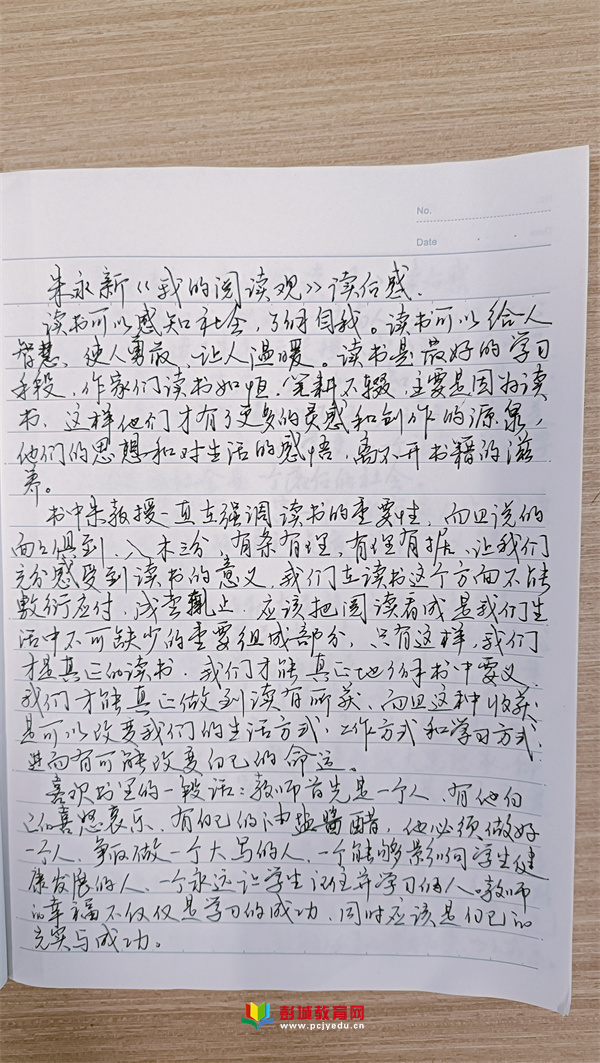 No.
Date
朱永新《我的阅读观》读后感.
读书可以感知社会,了解自我。读书可以给人
智慧、使人勇敢、让人温暖。读书是最好的学习
手段,作家们读书如恒,笔耕不辍,主要是因为读
书、这样他们才有了更多的灵感和创作的源泉,
他们的思想和对生活的感悟,离不开书籍的滋
养。
书中朱教授一直在强调读书的重要性,而且说的
面面俱到,入木三分,有条有理,有理有据、让我们
充分感受到读书的意义,我们在读书这个方面不能
敷衍应付,浅尝辄止,应该把阅读看成是我们生
活中不可缺少的重要组成部分,只有这样,我们
才是真正的读书,我们才能真正地了解书中要义
我们才能真正做到读有所获,而且这种收获
是可以改变我们的生活方式,工作方式和学习方式,
进而有可能改变自己的命运。
喜欢书里的一段话:教师首先是一个人,有他自
己的喜怒哀乐,有自己的油盐酱醋,他必须做好
一个人,争取做一个大写的人,一个能够影响学生健
康发展的人,一个永远让学生记住并学习的人。教师
的幸福不仅仅是学习的成功,同时应该是自己的
充实与成功。
彭城教育网
www.pcjyedu.cn